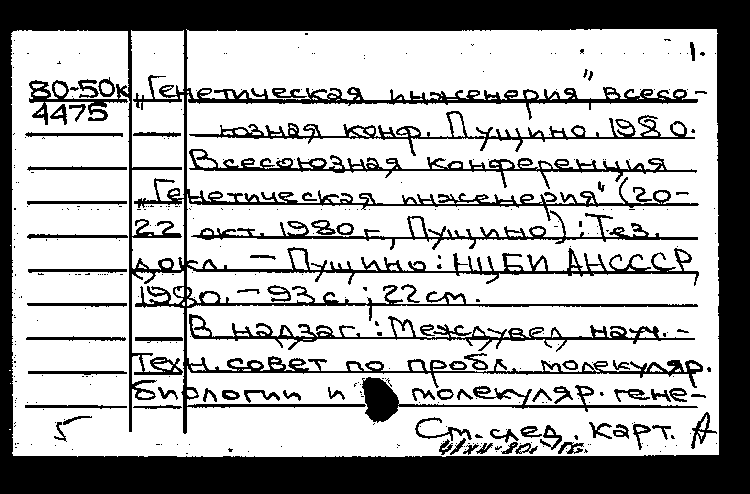 1.
80-50к „Генетическая инженерия", всесо-
4475
юзная конф. Пущино. 1980.
Всесоюзная конференция
„Генетическая инженерия" (20-
22 окт. 1980 г., Пущино): Тез.
докл. — Пущино: НЦБИ АНСССР,
1980. — 93 с.; 22 см.
В надзаг.: Междувед. науч.-
техн. совет по пробл. молекуляр.
биологии и молекуляр. гене-
5 См. след. карт. А